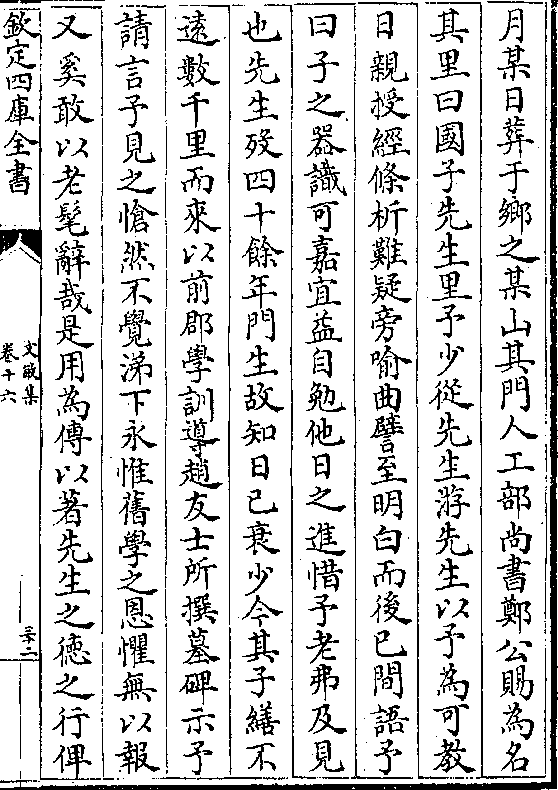 月某日葬于鄉之某山其門人工部尚書鄭公賜為名
其里曰國子先生里予少從先生游先生以予為可教
日親授經條析難疑旁喻曲譬至明白而後已間語予
曰子之器識可嘉宜益自勉他日之進惜予老弗及見
也先生歿四十餘年門生故知日已衰少今其子繕不
遠數千里而來以前郡學訓導趙友士所撰墓碑示予
請言予見之愴然不覺涕下永惟舊學之恩懼無以報
又奚敢以老髦辭哉是用為傳以著先生之德之行俾
欽定四庫全書
文敏集
卷十六
三十二